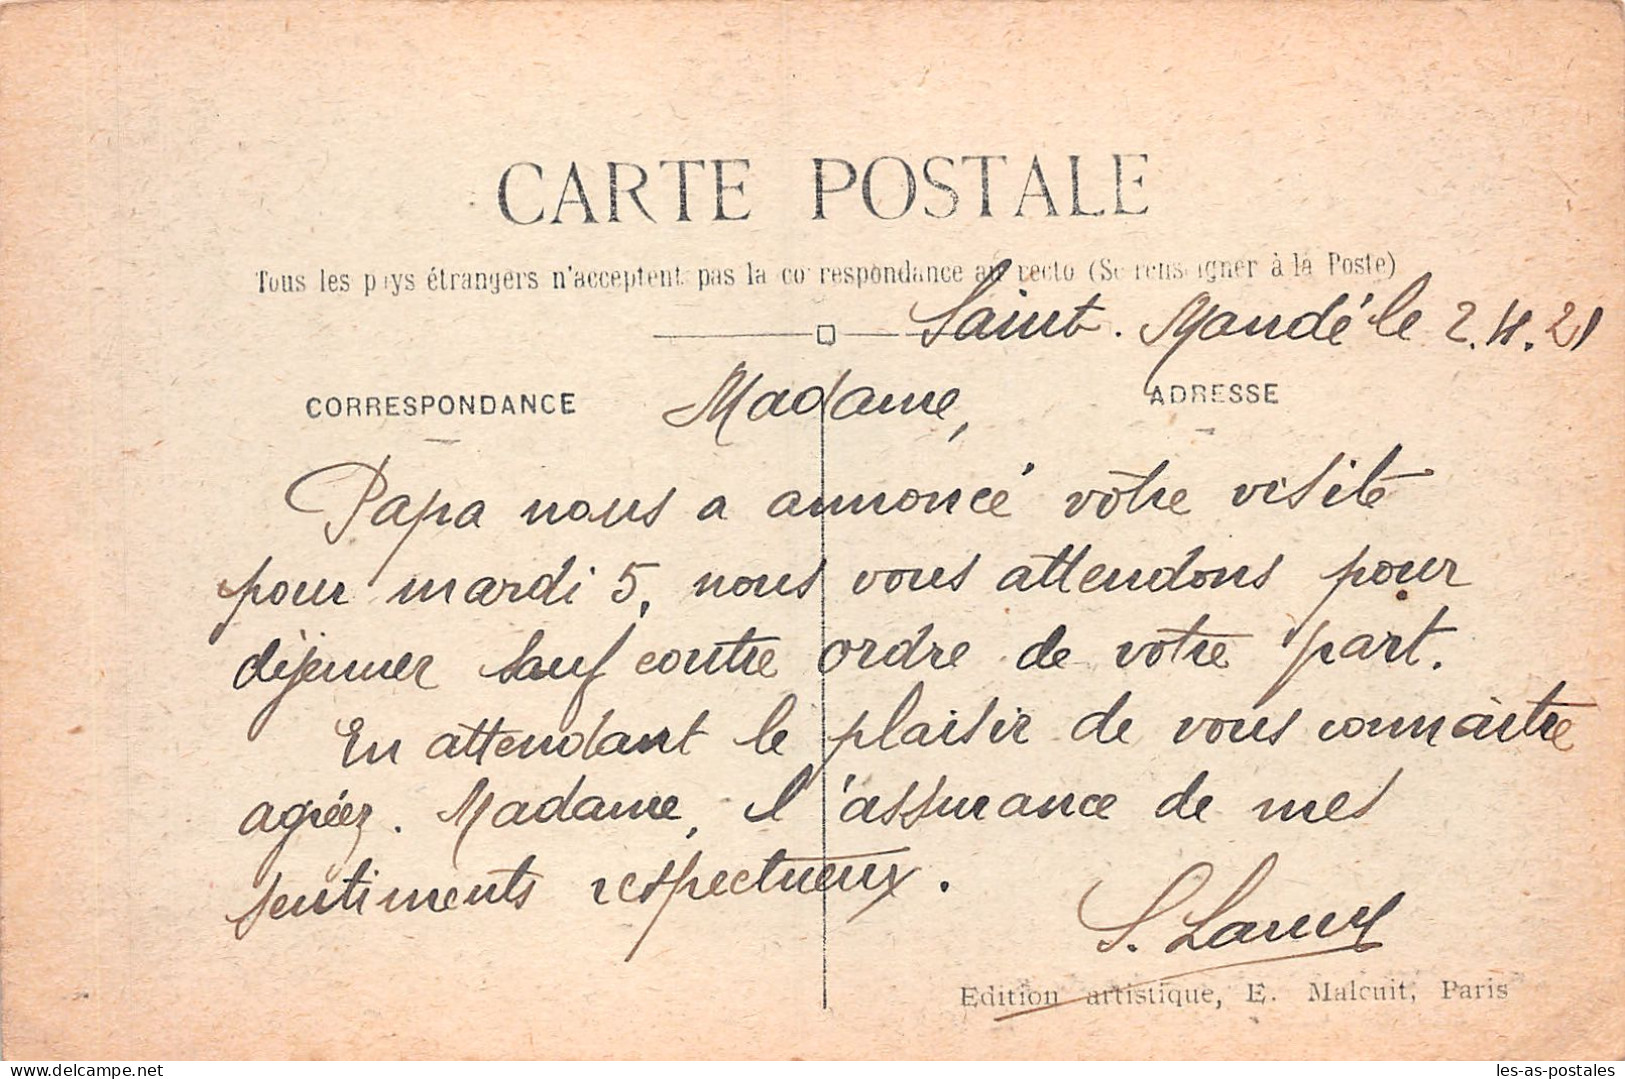 CARTE POSTALE
Tous les pays étrangers n'acceptent pas la correspondance au recto (Se renseigner à la Poste)
Saint-Mandé le 2.4.21
CORRESPONDANCE
ADRESSE
Madame,
Papa nous a annoncé vôtre visite
pour mardi 5, nous vous attendons pour
déjeuner sauf contre ordre de votre part.
En attendant le plaisir de vous connaître
agréez. Madame, l'assurance de mes
sentiments respectueux.
S. Lamy
Edition artistique, E. Malcuit, Paris
les-as-postales